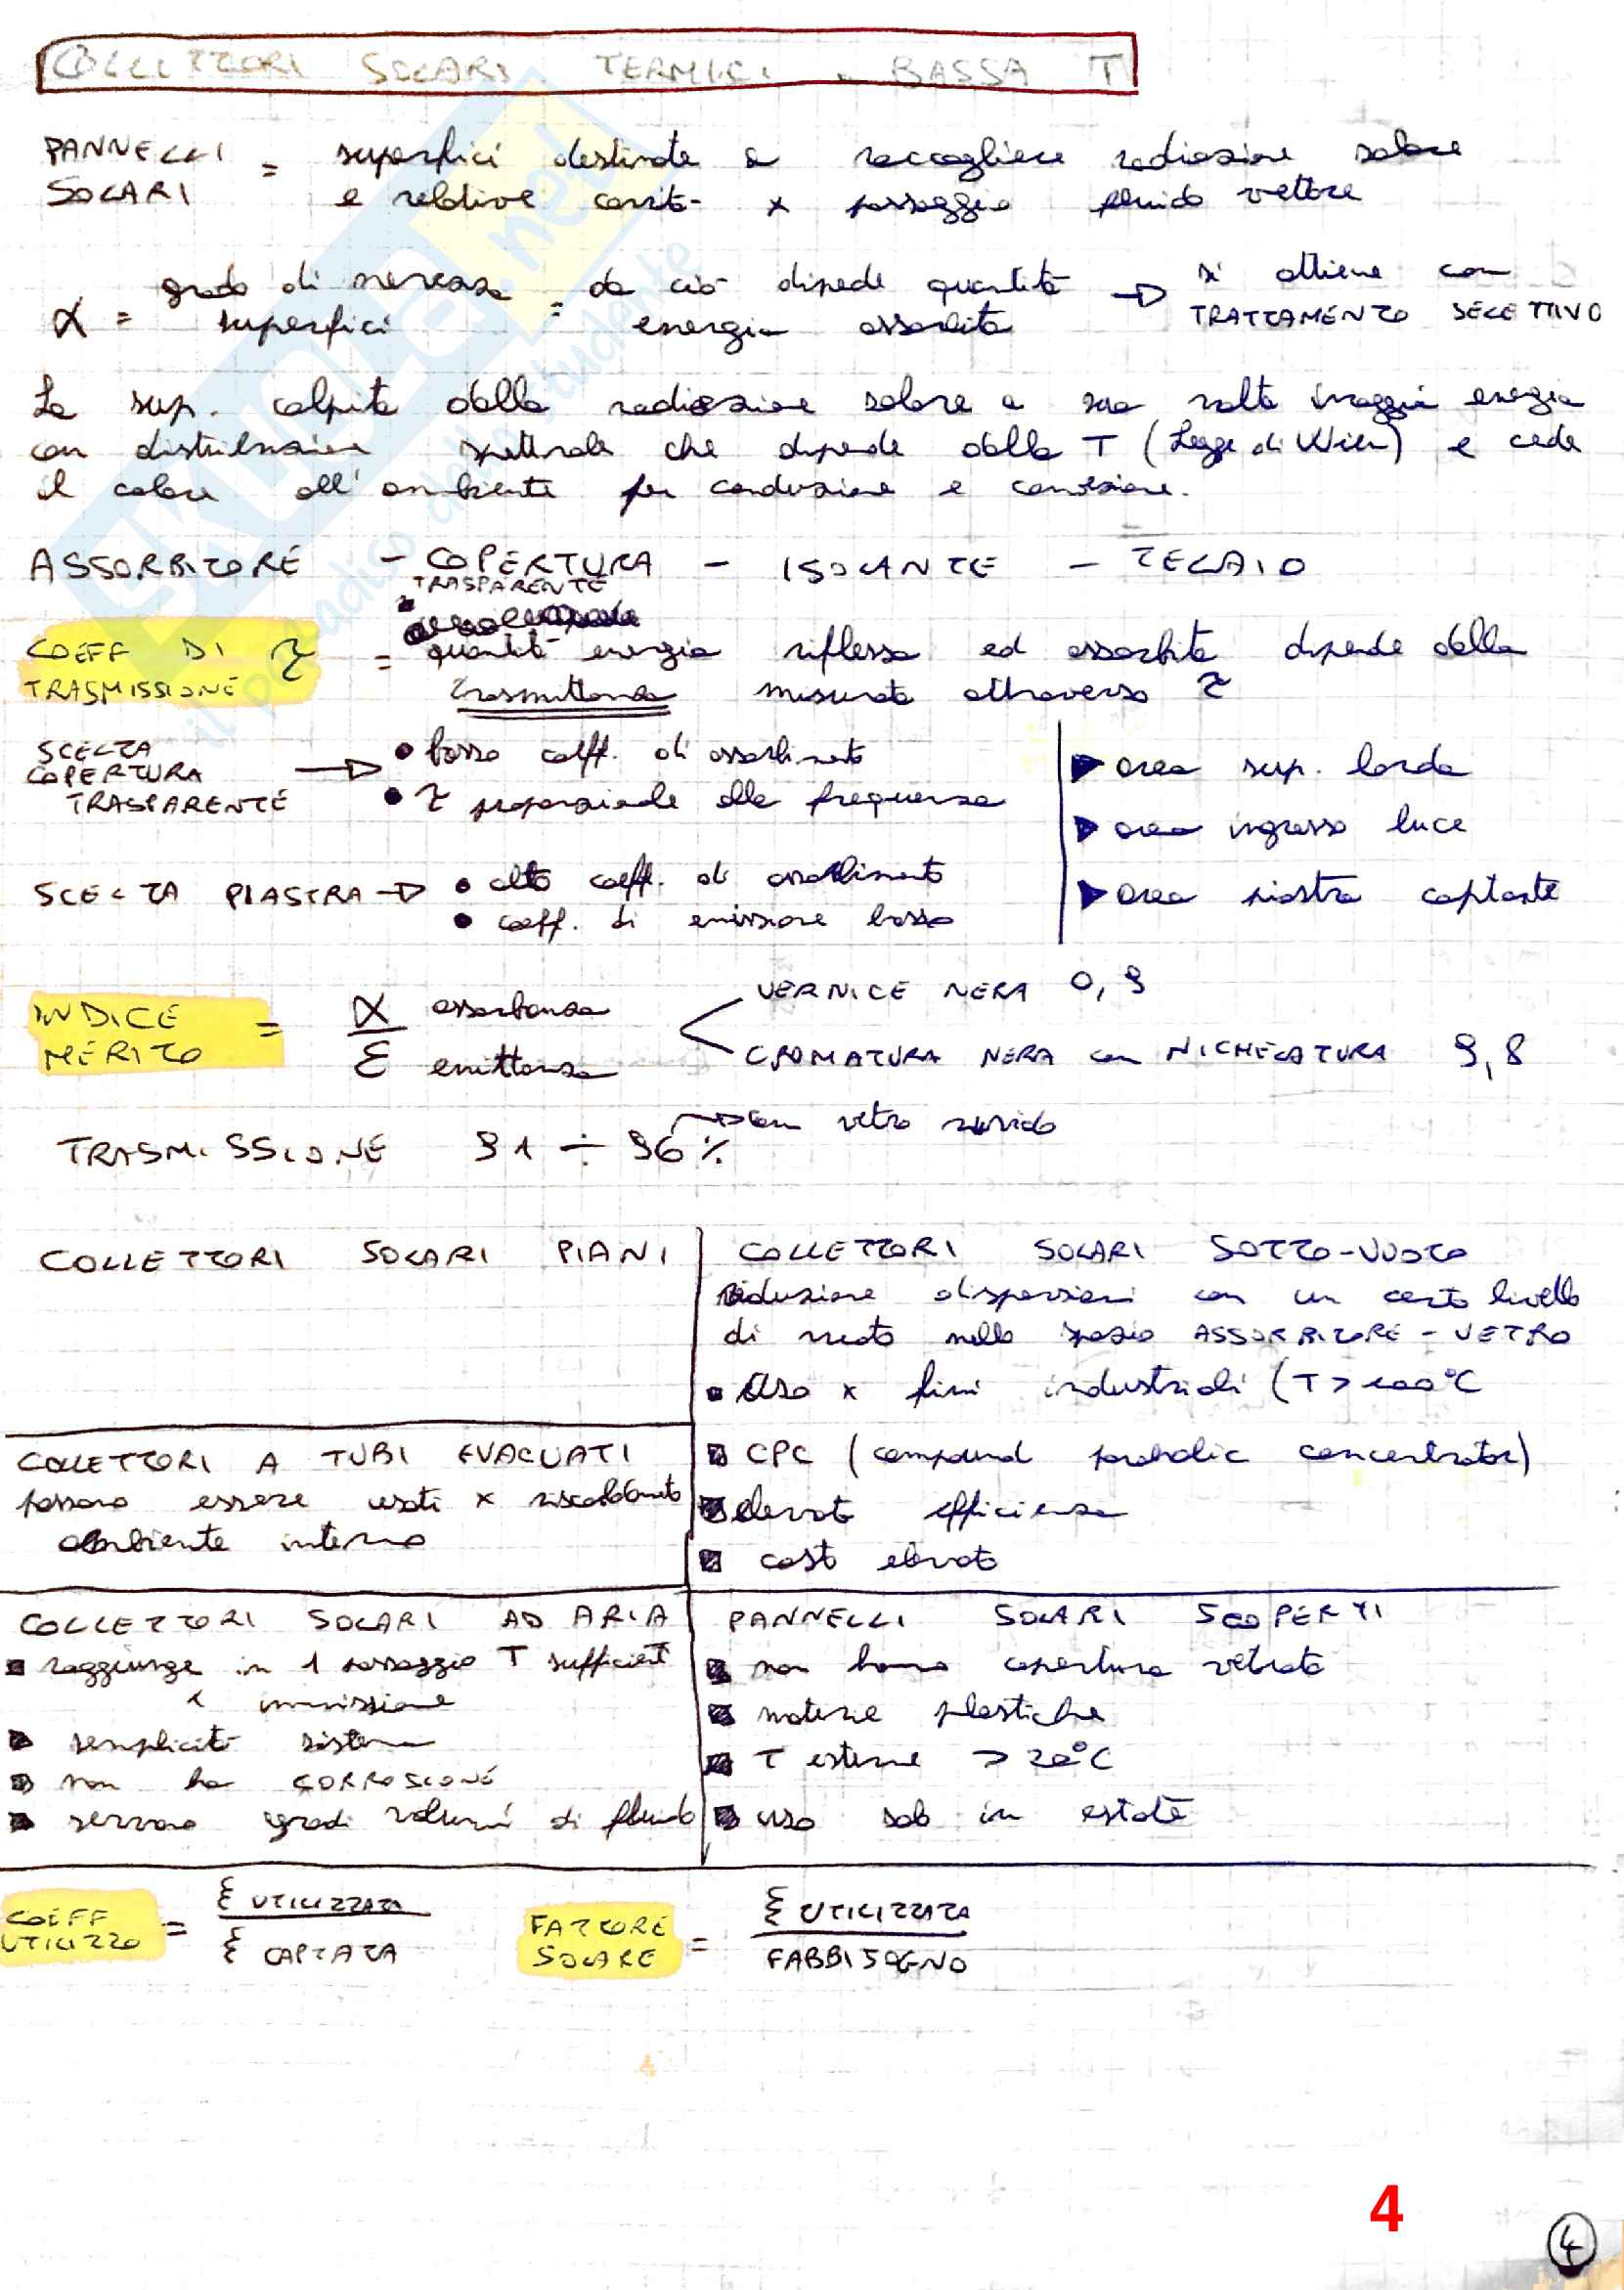 COLLETTORI SOLARI TERMICI BASSA T
PANNELLI SOLARI = superfici destinate a raccogliere radiazione solare
e relative cavità x passaggio fluido vettore
α = grado di nerezza superfici = da ciò dipede quantità energia assorbita → si ottiene con TRATTAMENTO SELETTIVO
La sup. colpita dalla radiazione solare a sua volta irraggia energia
con distribuzione spettrale che dipende dalla T (Legge di Wien) e cede
il calore all'ambiente per conduzione e convezione.
ASSORBITORE - COPERTURA TRASPARENTE - ISOLANTE - TELAIO
COEFF DI TRASMISSIONE τ = quantità energia riflessa ed assorbita dipende dalla
trasmittanza misurata attraverso τ
SCELTA COPERTURA TRASPARENTE → • basso coeff. di assorbimento
• τ proporzionale alla frequenza
SCELTA PIASTRA → • alto coeff. di assorbimento
• coeff. di emissione basso
▶ area sup. lorda
▶ area ingresso luce
▶ area piastra captante
INDICE MERITO = α assorbanza / ε emittanza
VERNICE NERA 0,9
CROMATURA NERA con NICHELATURA 9,8
TRASMISSIONE 91 ÷ 96% → con vetro
COLLETTORI SOLARI PIANI
COLLETTORI SOLARI SOTTO-VUOTO
riduzione dispersioni con un certo livello
di vuoto nello spazio ASSORBITORE - VETRO
• Uso x fini industriali (T > 100°C
CPC (compound parabolic concentrator)
elevata efficienza
costo elevato
COLLETTORI A TUBI EVACUATI
possono essere usati x riscaldamento
ambiente interno
COLLETTORI SOLARI AD ARIA
raggiunge in 1 passaggio T sufficient
x immissione
semplicità sistema
non ha CORROSIONE
servono gradi volumi di fluido
PANNELLI SOLARI SCOPERTI
non hanno copertura vetrata
materie plastiche
T esterne > 20°C
uso solo in estate
COEFF UTILIZZO = E UTILIZZATA / E CAPTATA
FATTORE SOLARE = E UTILIZZATA / FABBISOGNO
4
4
skuola.net
il paradiso dello studente